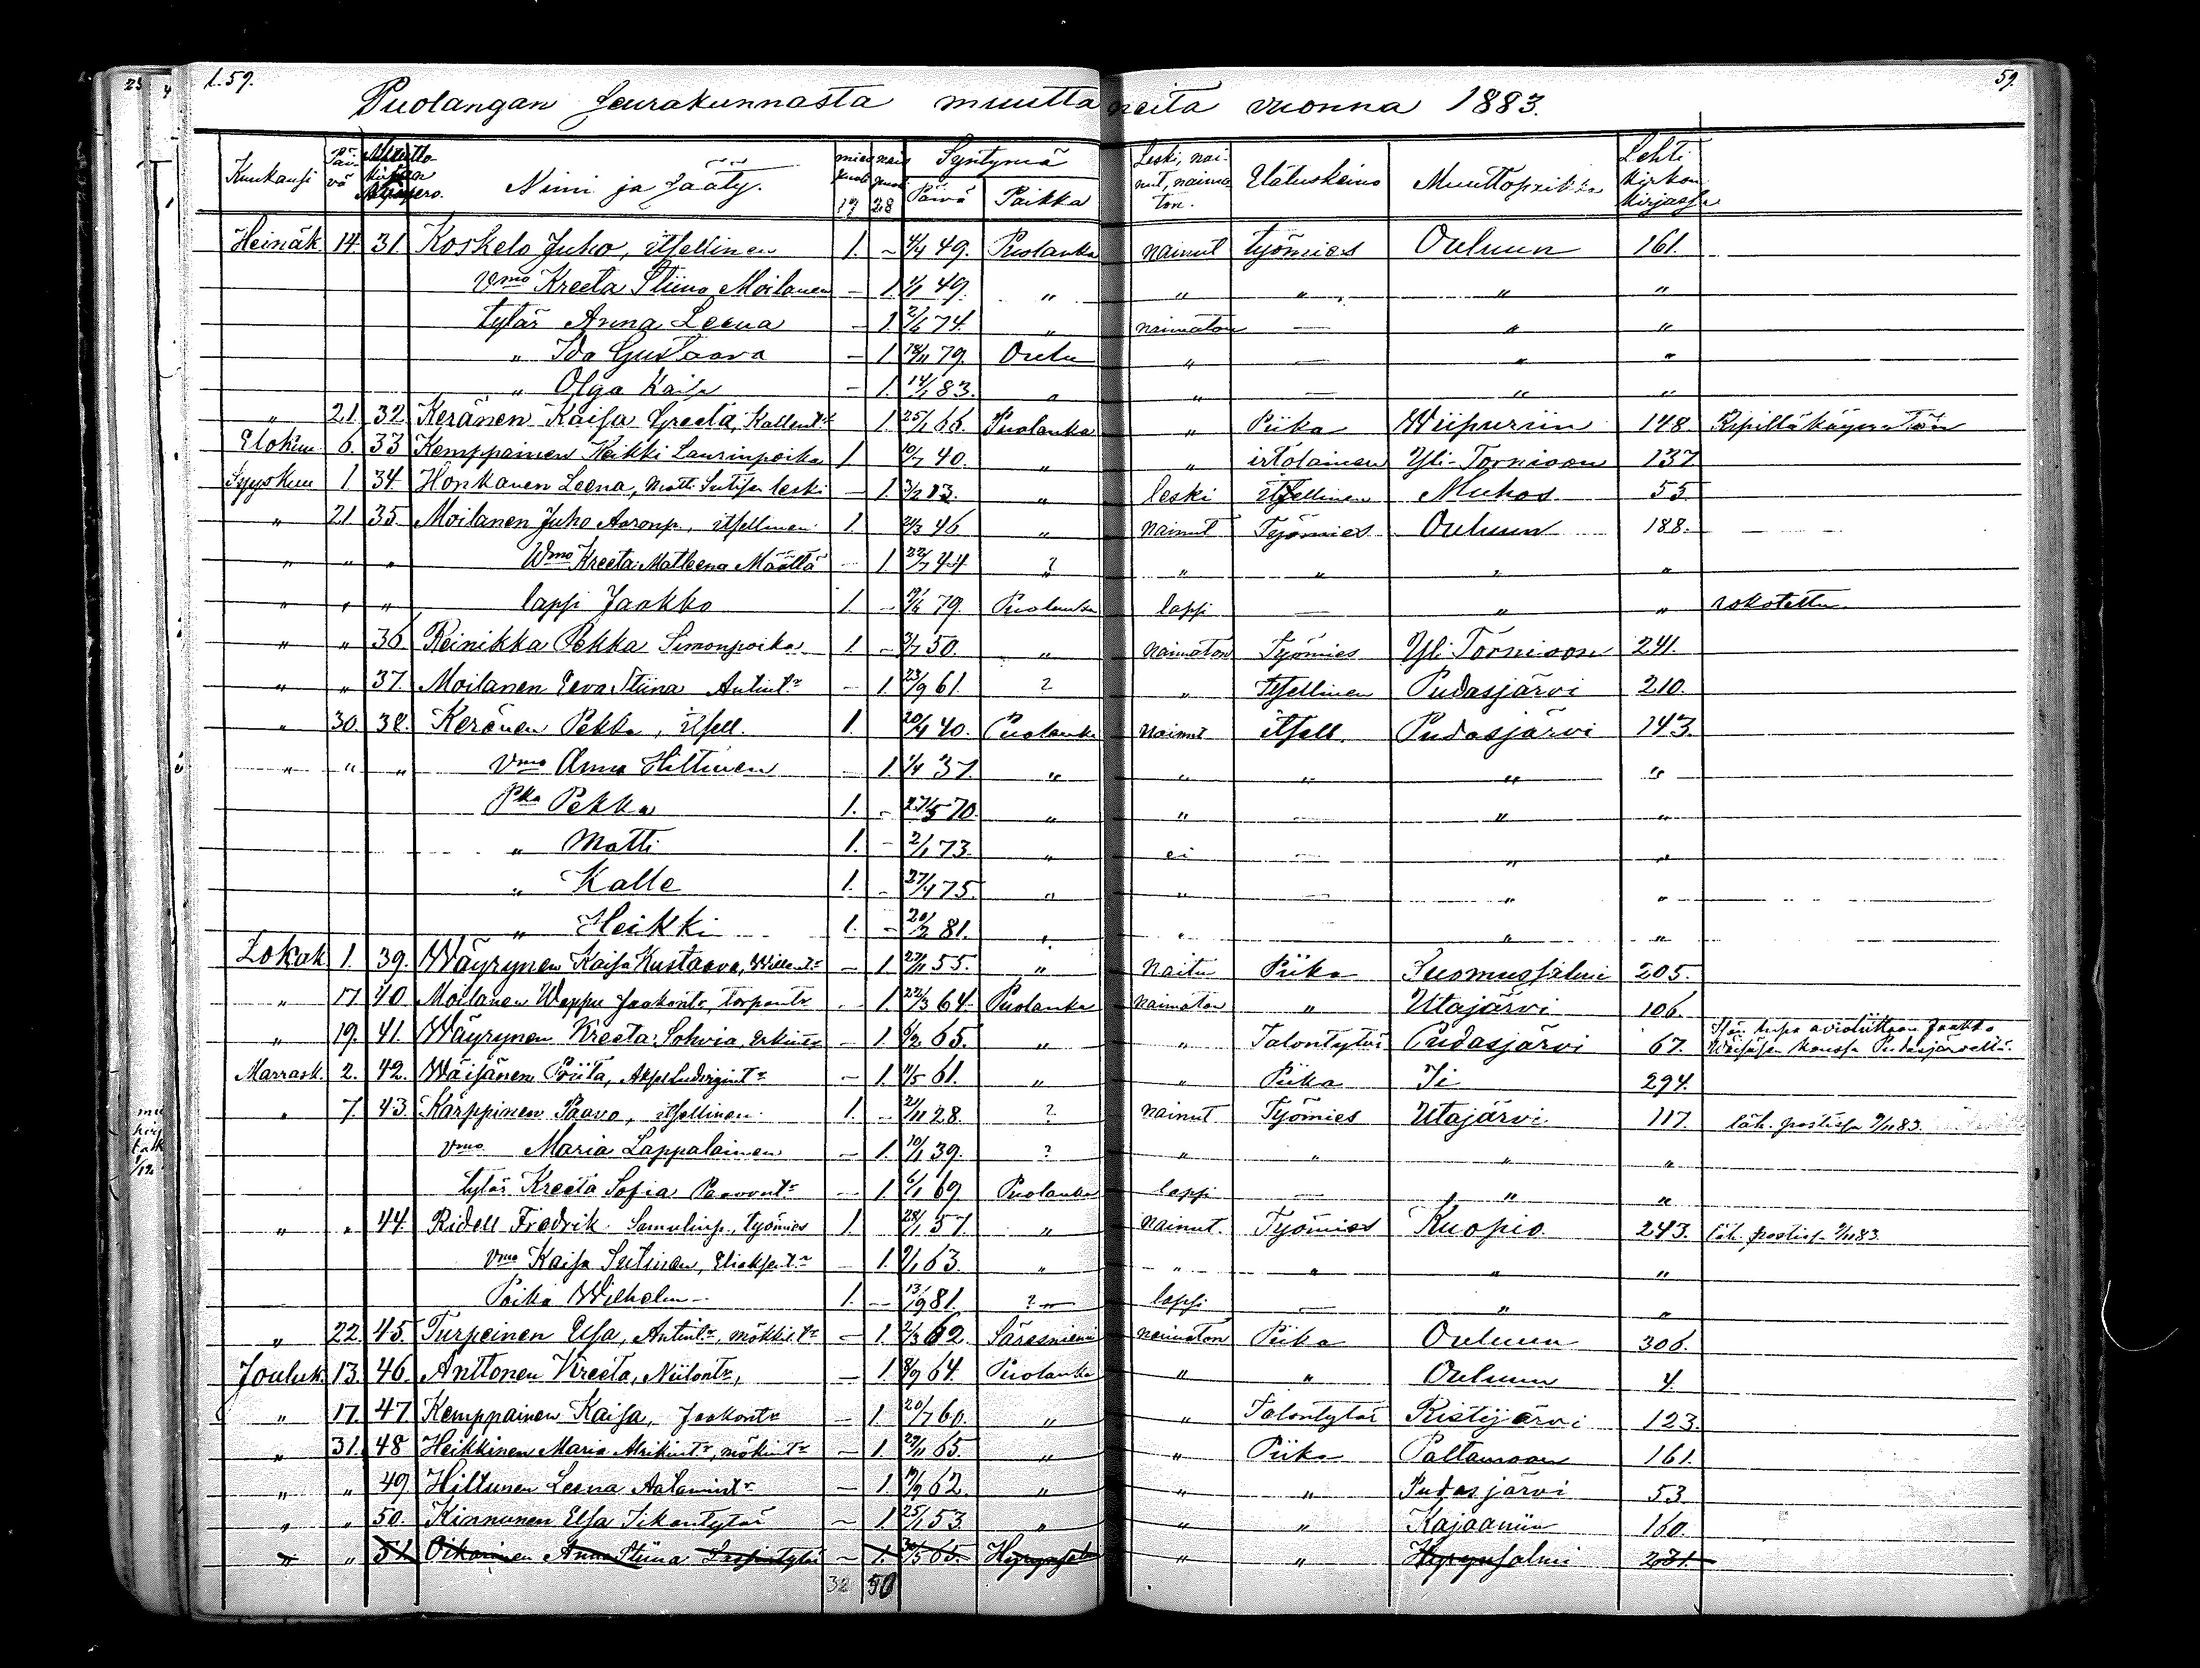 l. 59. 59.
Puolangan seurakunnasta muuttaneita vuonna 1883.
Kuukausi Päivä Muuttokirjan Numero. Nimi ja sääty. mies puoli 17 nais puoli 28 Syntymä Päivä Paikka Leski, nainut, naimaton. Elatuskeino Muuttopaikka Lehti kirkonkirjassa
Heinäk. 14. 31. Koskelo Juho, itsellinen 1. – 4/4 49. Puolanka nainut työmies Ouluun 161.
Vmo Kreeta Stiina Moilanen – 1. 1/1 49. " " " " "
tytär Anna Leena – 1. 2/6 74. " naimaton — " "
" Ida Gustaava – 1. 18/11 79. Oulu " — " "
" Olga Kaisa – 1. 14/1 83. " " — " "
" 21. 32. Keränen Kaisa Greeta, Kallentr 1. 25/1 66. Puolanka " Piika Wiipuriin 148. Ripillä käymätön
Elokuu 6. 33 Kemppainen Heikki Laurinpoika 1 10/7 40. " " irtolainen Yli-Tornioon 137
Syyskuu 1. 34. Honkanen Leena, Matti Sutisen leski – 1. 3/2 13. " leski itsellinen Muhos 55
" 21 35. Moilanen Juho Aaronp., itsellinen 1. 29/3 46 " nainut Työmies Ouluun 188.
" " " Wmo Kreeta Matleena Määttä – 1. 22/7 44 ? " " " "
" " " lapsi Jaakko 1. – 9/6 79. Puolanka lapsi — " " rokotettu
" " 36. Reinikka Pekka Simonpoika 1 – 3/7 50. " naimaton Työmies Yli Tornioon 241.
" " 37. Moilanen Eeva Stiina Antintr – 1. 23/9 61. ? " Itsellinen Pudasjärvi 210.
" 30. 38. Keränen Pekka, itsell. 1. 20/4 40. Puolanka Nainut itsell. Pudasjärvi 143.
" " " Vmo Anna Hiltunen – 1. 1/4 37. " " " " "
Pka Pekka 1. – 27/5 70. " " — " "
" Matti 1. – 2/1 73. " ei — " "
" Kalle 1. – 27/4 75. " " — " "
" Heikki 1. – 20/2 81. " " — " "
Lokak. 1. 39. Wäyrynen Kaisa Kustaava, Willentr – 1. 27/11 55. " Naitu Piika Suomussalmi 205.
" 17 40. Moilanen Wappu Jaakontr, torpantr – 1. 22/3 64. Puolanka naimaton " Utajärvi 106.
" 19. 41. Wäyrynen Kreeta Sohvia, Erkintr – 1 6/2 65. " " Talontytär Pudasjärvi 67. lupa avioliittoon Jaakko
Wäisäsen kanssa Pudasjärveltä.
Marrask. 2. 42. Wäisänen Priita, Aksel Ludviginitr – 1. 11/5 61. " " Piika Ii 294.
" 7. 43. Karppinen Paavo, itsellinen 1. – 21/11 28. ? nainut Työmies Utajärvi 117. läh. postissa 9/11 83.
Vmo Maria Lappalainen – 1. 10/1 39. ? " " " "
tytär Kreeta Sofia Paavontr – 1 6/1 69 Puolanka lapsi — " "
" " 44. Ridell Fredrik Samulinp., työmies 1. 28/1 57. " nainut. Työmies Kuopio 243. läh. postissa 9/11 83.
Vmo Kaisa Sutinen, Eliaksentr – 1. 9/1 63. " " " " "
Poika Wilhelm – 1. – 13/9 81. ? lapsi — " "
" 22. 45. Turpeinen Elsa, Antintr, mökkit.tr – 1. 2/3 62. Säresniemi naimaton Piika Ouluun 306.
Jouluk. 13. 46. Anttonen Kreeta, Niilontr, – 1. 8/9 64. Puolanka " " Ouluun 4.
" 17. 47 Kemppainen Kaisa, Jaakontr – 1. 20/7 60. " " Talontytär Ristijärvi 123.
" 31. 48 Heikkinen Maria, mökintr – 1. 29/11 65. " " Piika Paltamoon 161.
" " 49. Hiltunen Leena Aatamintr – 1. 19/9 62. " " " Pudasjärvi 53
" " 50. Kinnunen Elsa Iikantytär – 1. 25/1 53. " " " Kajaaniin 160.
" " 51. Oikarinen Anna Stiina – 1. 30/5 65. Hyrynsalmi " " Hyrynsalmi 231.
32 50